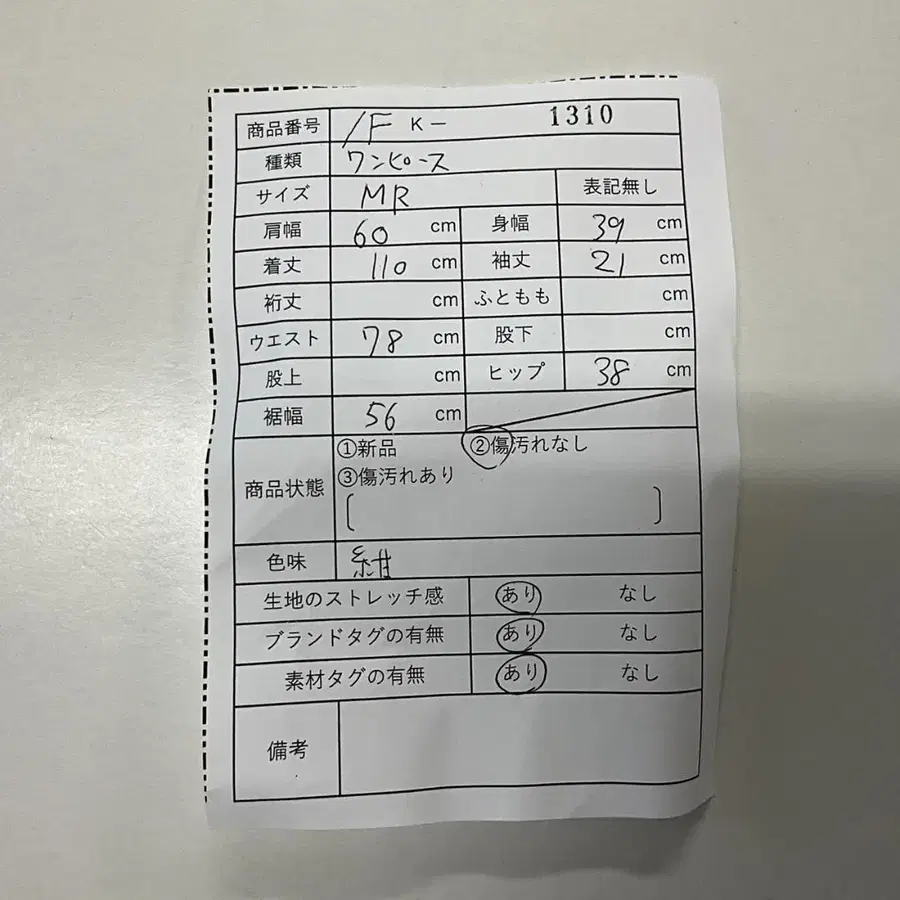 商品番号 /F K- 1310
種類 ワンピース
サイズ MR 表記無し
肩幅 60 cm 身幅 39 cm
着丈 110 cm 袖丈 21 cm
裄丈 cm ふともも cm
ウエスト 78 cm 股下 cm
股上 cm ヒップ 38 cm
裾幅 56 cm
商品状態 ①新品 ②傷汚れなし
③傷汚れあり
[ ]
色味 紺
生地のストレッチ感 あり なし
ブランドタグの有無 あり なし
素材タグの有無 あり なし
備考